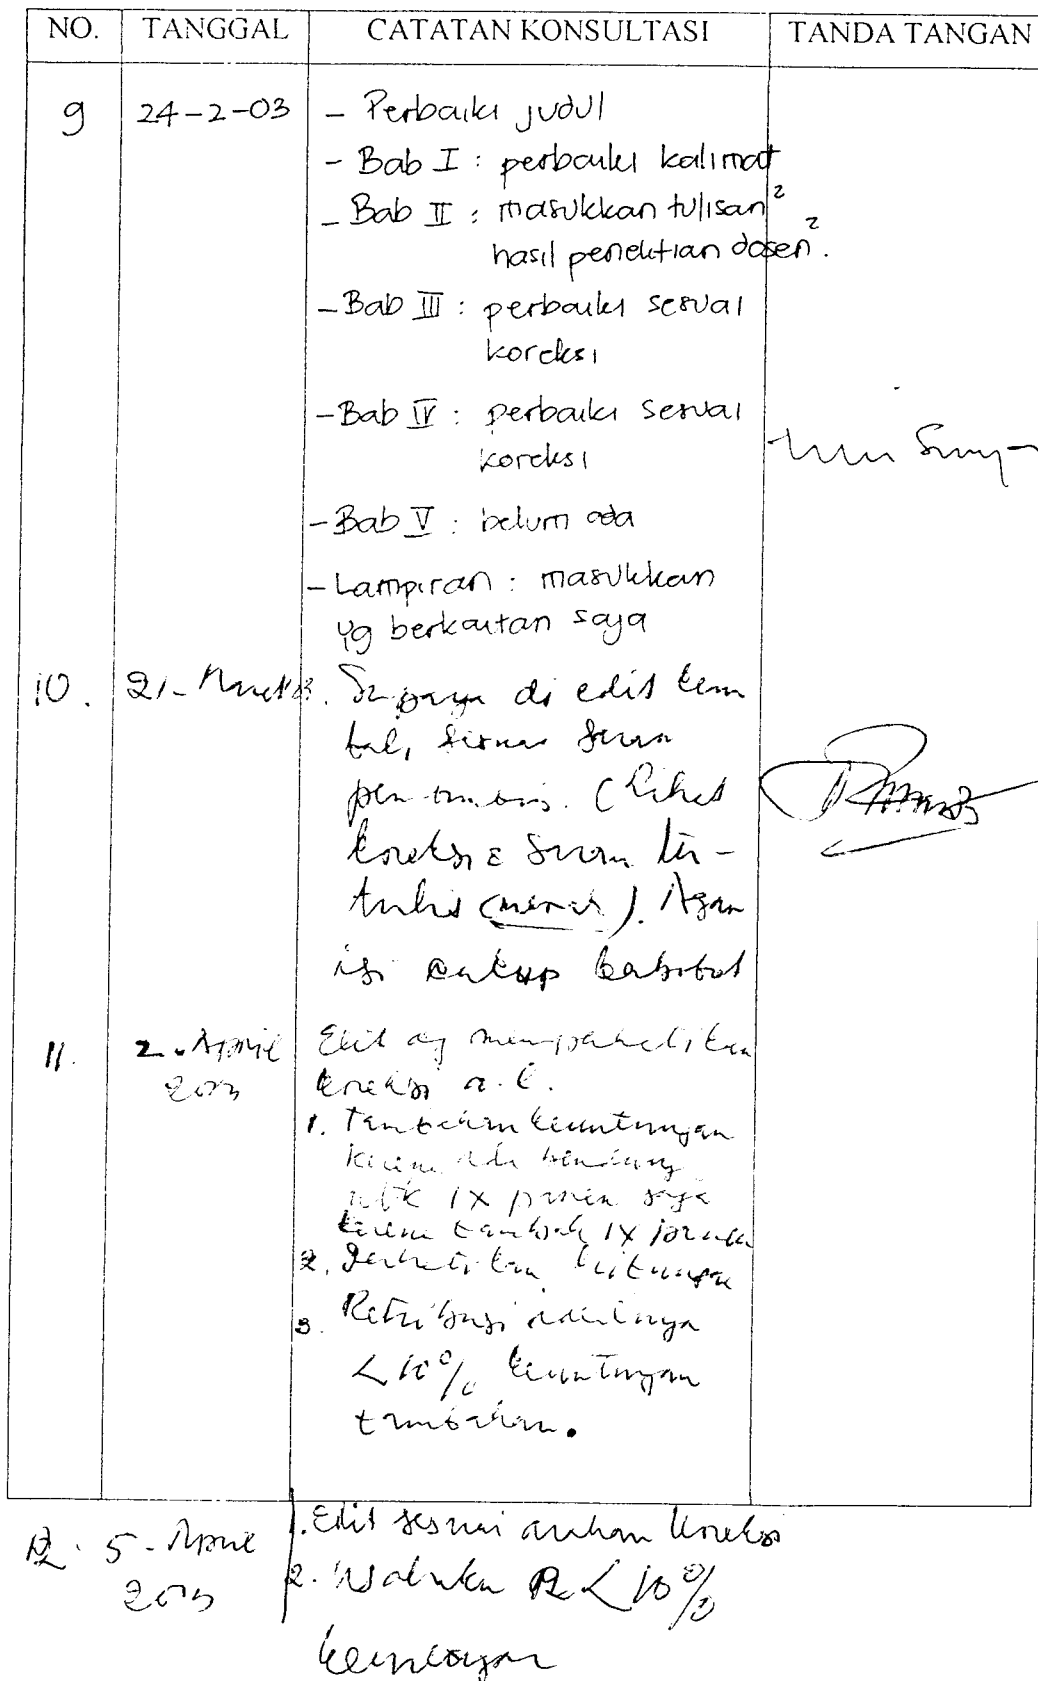 NO. TANGGAL CATATAN KONSULTASI TANDA TANGAN
9 24-2-03 - Perbaiki judul
- Bab I : perbaiki kalimat
- Bab II : masukkan tulisan²
hasil penelitian dosen².
- Bab III : perbaiki sesuai
koreksi
- Bab IV : perbaiki sesuai
koreksi
- Bab V : belum ada
- Lampiran : masukkan
yg berkaitan saja
10. 21-Maret 03. Supaya di edit kem
bali, sesuai saran
pembimbing. (Lihat
koreksi & saran ter-
tulis (merah). Agar
isi cukup berbobot
11. 2-April Edit dg memperhatikan
2003 koreksi a.l.
1. Tambahan keuntungan
karena ada bendung
utk 1x panen saja
karena tambah 1x
2. Perhatikan hitungan
3. Retribusi idealnya
< 10% keuntungan
tambahan.
12. 5-April 1. Edit sesuai arahan koreksi
2003 2. < 10%
keuntungan